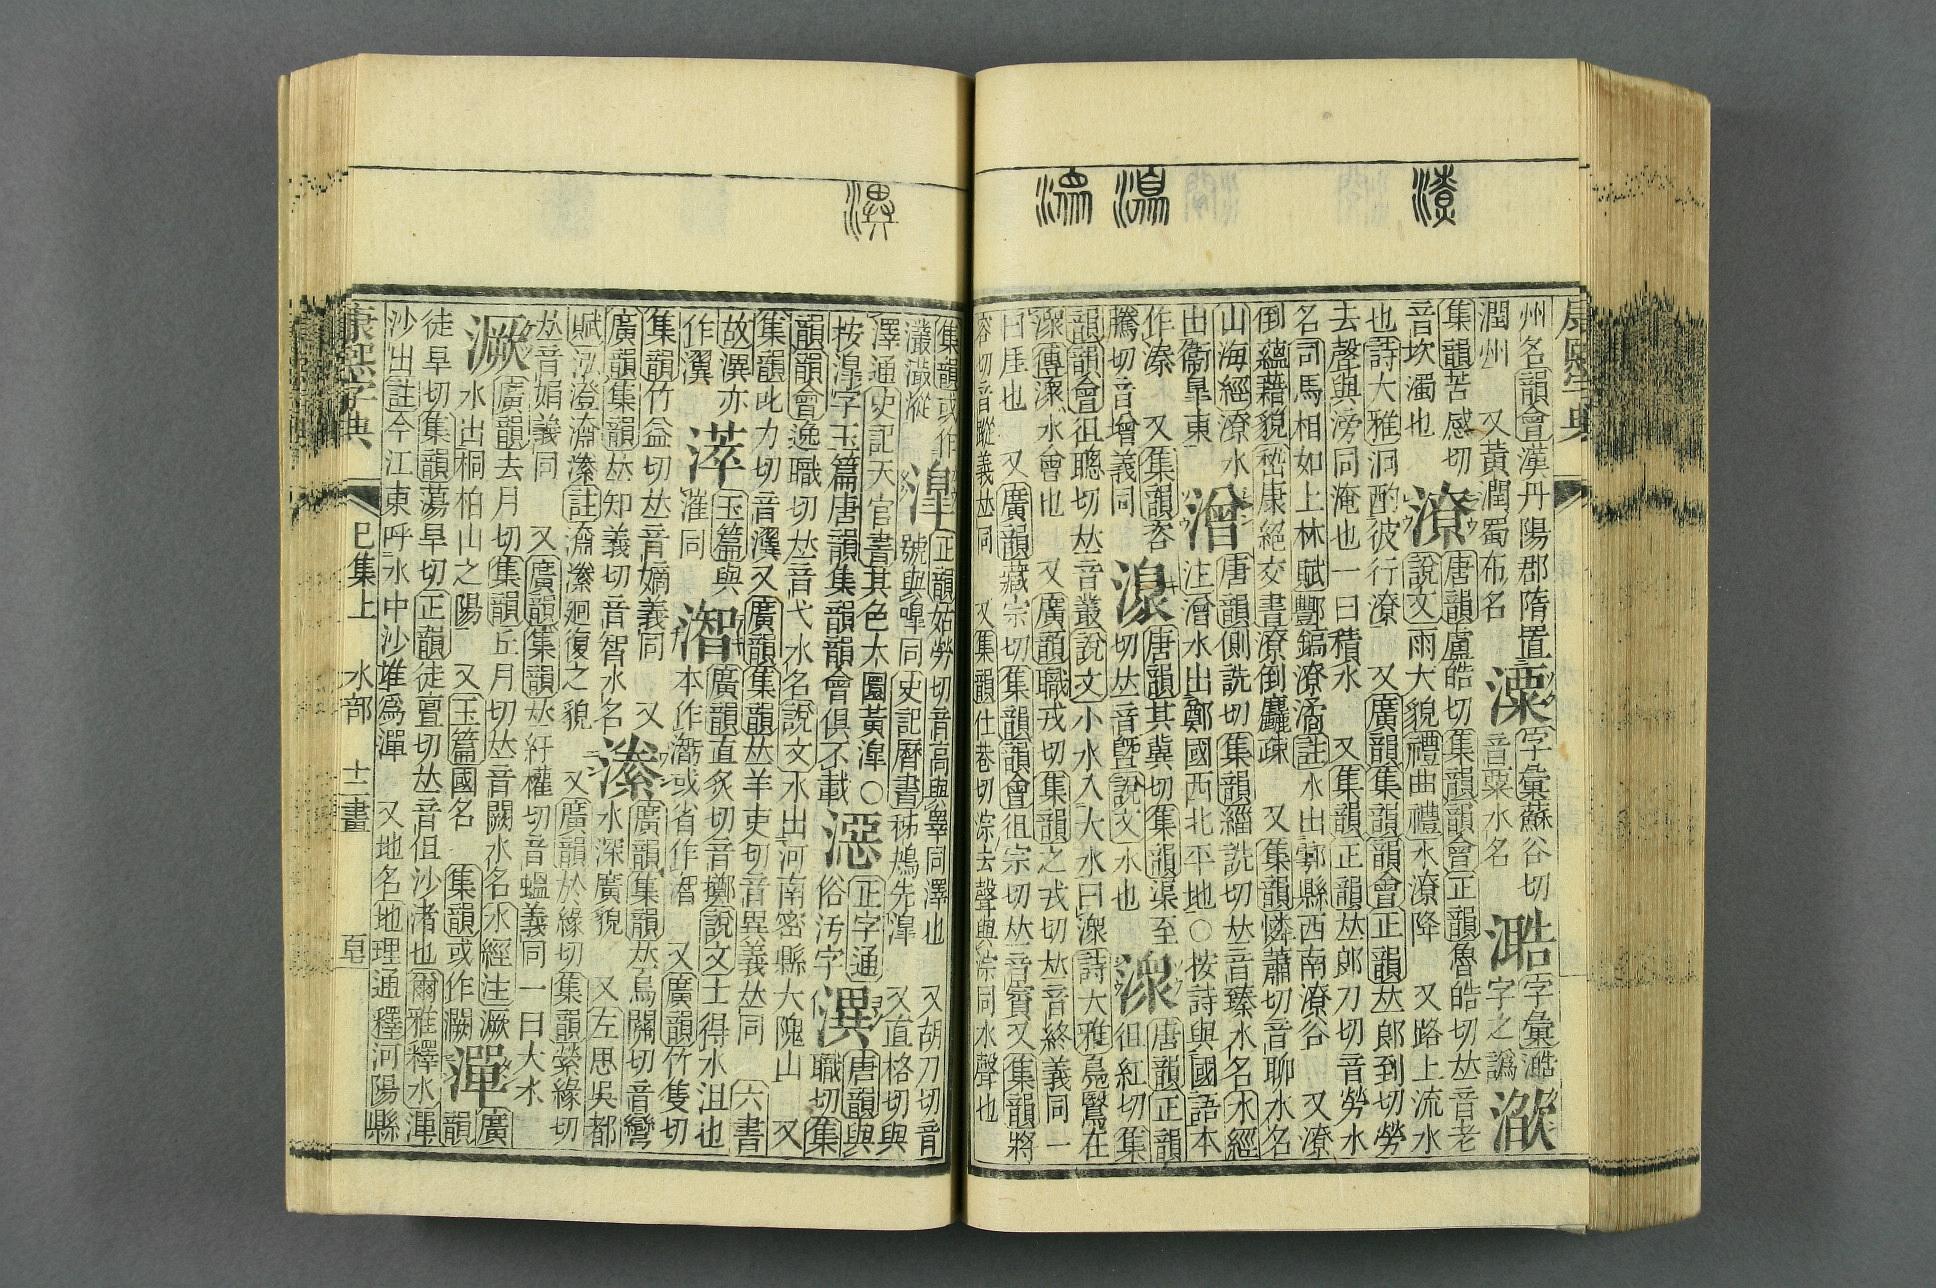 康熙字典
州名韻會漢丹陽郡隋置
潤州 又黃潤蜀布名
溧
字彙蘇谷切
音粟水名
澔
字彙澔
字之譌
集韻苦感切
音坎濁也
潦
唐韻盧皓切集韻韻會正韻魯皓切𠀤音老
說文雨大貌禮曲禮水潦降 又路上流水
也詩大雅泂酌彼行潦 又廣韻集韻韻會正韻𠀤郎到切勞
去聲與澇同淹也一曰積水 又集韻正韻𠀤郎刀切音勞水
名司馬相如上林賦酆鎬潦潏註水出鄠縣西南潦谷 又潦
倒蘊藉貌嵆康絕交書潦倒麤疎 又集韻憐蕭切音聊水名
山海經潦水
出衞臯東
潧
唐韻側詵切集韻緇詵切𠀤音臻水名水經
注潧水出鄭國西北平地○按詩與國語本
作溱 又集韻
騰切音增義同
湶
唐韻其冀切集韻渠至
切𠀤音曁說文水也
潨
唐韻正韻
徂紅切集
韻韻會徂聰切𠀤音叢說文小水入大水曰潨詩大雅鳧鷖在
潨傳潨水會也 又廣韻職戎切集韻之戎切𠀤音終義同一
曰厓也 又廣韻藏宗切集韻韻會徂宗切𠀤音賨又集韻將
容切音蹤義𠀤同 又集韻仕巷切淙去聲與淙同水聲也
集韻或作
灇漎
滜
正韻姑勞切音高與臯同澤也 又胡刀切音
號與嘷同史記曆書秭鳺先滜 又直格切與
澤通史記天官書其色大圜黃滜○
按滜字玉篇唐韻集韻韻會俱不載
𣽎
正字通
俗汚字
潩
唐韻與
職切集
韻韻會逸職切𠀤音弋水名說文水出河南密縣大隗山 又
集韻此力切音潠又廣韻集韻𠀤羊吏切音異義𠀤同 六書
故潩亦
作瀷
漼
玉篇與
漼同
潪
廣韻直炙切音擲說文土得水沮也
本作㵫或省作潪 又廣韻竹隻切
集韻竹益切𠀤音嫡義同 又
廣韻集韻𠀤知義切音智水名
潫
廣韻集韻𠀤烏關切音彎
水深廣貌 又左思吳都
賦泓澄奫潫註奫潫廻復之貌 又廣韻於緣切集韻縈緣切
𠀤音娟義同 又廣韻集韻𠀤紆權切音蝹義同一曰大水
潏
廣韻去月切集韻丘月切𠀤音闕水名水經注潏
水出桐柏山之陽 又玉篇國名 集韻或作灍
潬
廣
韻
徒旱切集韻蕩旱切正韻徒亶切𠀤音但沙渚也爾雅釋水潬
沙出註今江東呼水中沙堆爲潬 又地名地理通釋河陽縣
康熙字典 巳集上 水部 十二畫